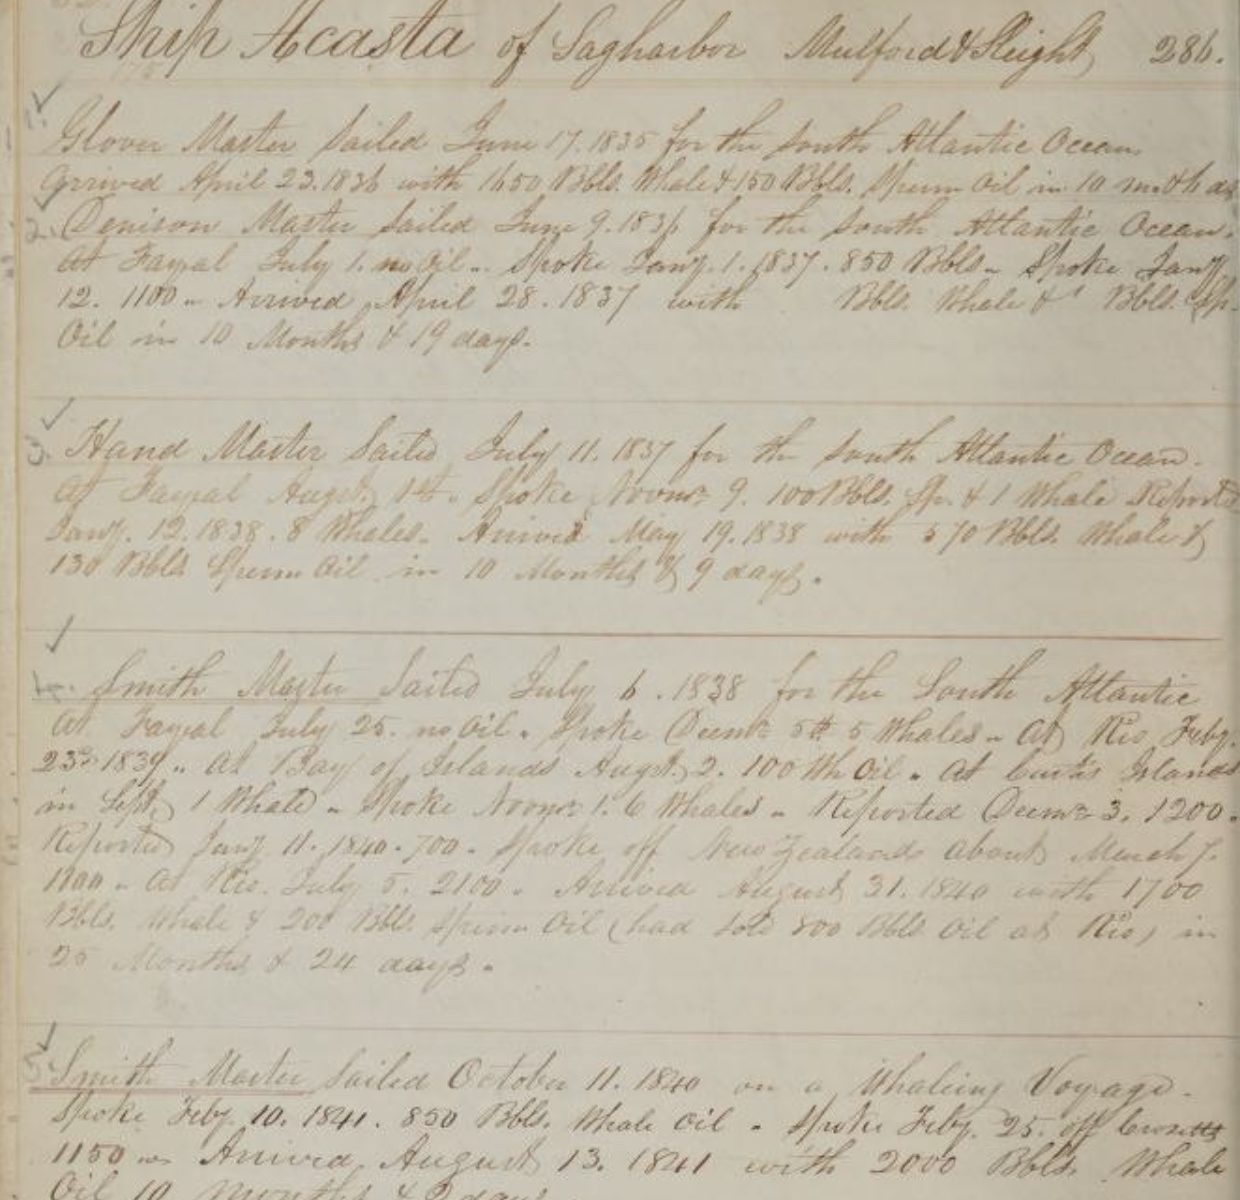 Ship Acasta of Sagharbor Mulford & Sleight 286.
1. Glover Master Sailed June 17. 1835 for the South Atlantic Ocean.
Arrived April 23. 1836 with 1650 Bbls. Whale & 150 Bbls. Sperm Oil in 10 mo. & 6 ds
2. Denison Master Sailed June 9. 1836 for the South Atlantic Ocean.
At Fayal July 1. no Oil. Spoke Jany. 1. 1837. 850 Bbls. Spoke Jany.
12. 1100. Arrived April 28. 1837 with Bbls. Whale & Bbls. Sp.
Oil in 10 Months & 19 days.
3. Hand Master Sailed July 11. 1837 for the South Atlantic Ocean.
At Fayal Augst. Spoke Novmr. 9. 100 Bbls. Sp. & 1 Whale Reported
Jany. 12. 1838. 8 Whales. Arrived May 19. 1838 with 570 Bbls. Whale &
130 Bbls Sperm Oil in 10 Months & 9 days.
4. Smith Master Sailed July 6. 1838 for the South Atlantic
At Fayal July 25. no Oil. Spoke Decmr. 5th 5 Whales. At Rio Feby.
23d. 1839. At Bay of Islands Augst. 2. 100 Wh Oil. At Curtis Islands
in Sept. 1 Whale. Spoke Novmr. 1. 6 Whales. Reported Decmr. 3. 1200.
Reported Jany 11. 1840. 700. Spoke off New Zealand about March 7.
At Rio. July 5. 2100. Arrived August 31. 1840 with 1700
Bbls. Whale & 200 Bbls. Sperm Oil (had sold 800 Bbls Oil at Rio) in
25 Months & 24 days.
5 Smith Master Sailed October 11. 1840 on a Whaleing Voyage.
Spoke Feby. 10. 1841. 850 Bbls. Whale Oil. Spoke Feby. 25. off Crosetts
1150. Arrived August 13. 1841 with 2000 Bbls. Whale
Oil 10 months & 2 days.